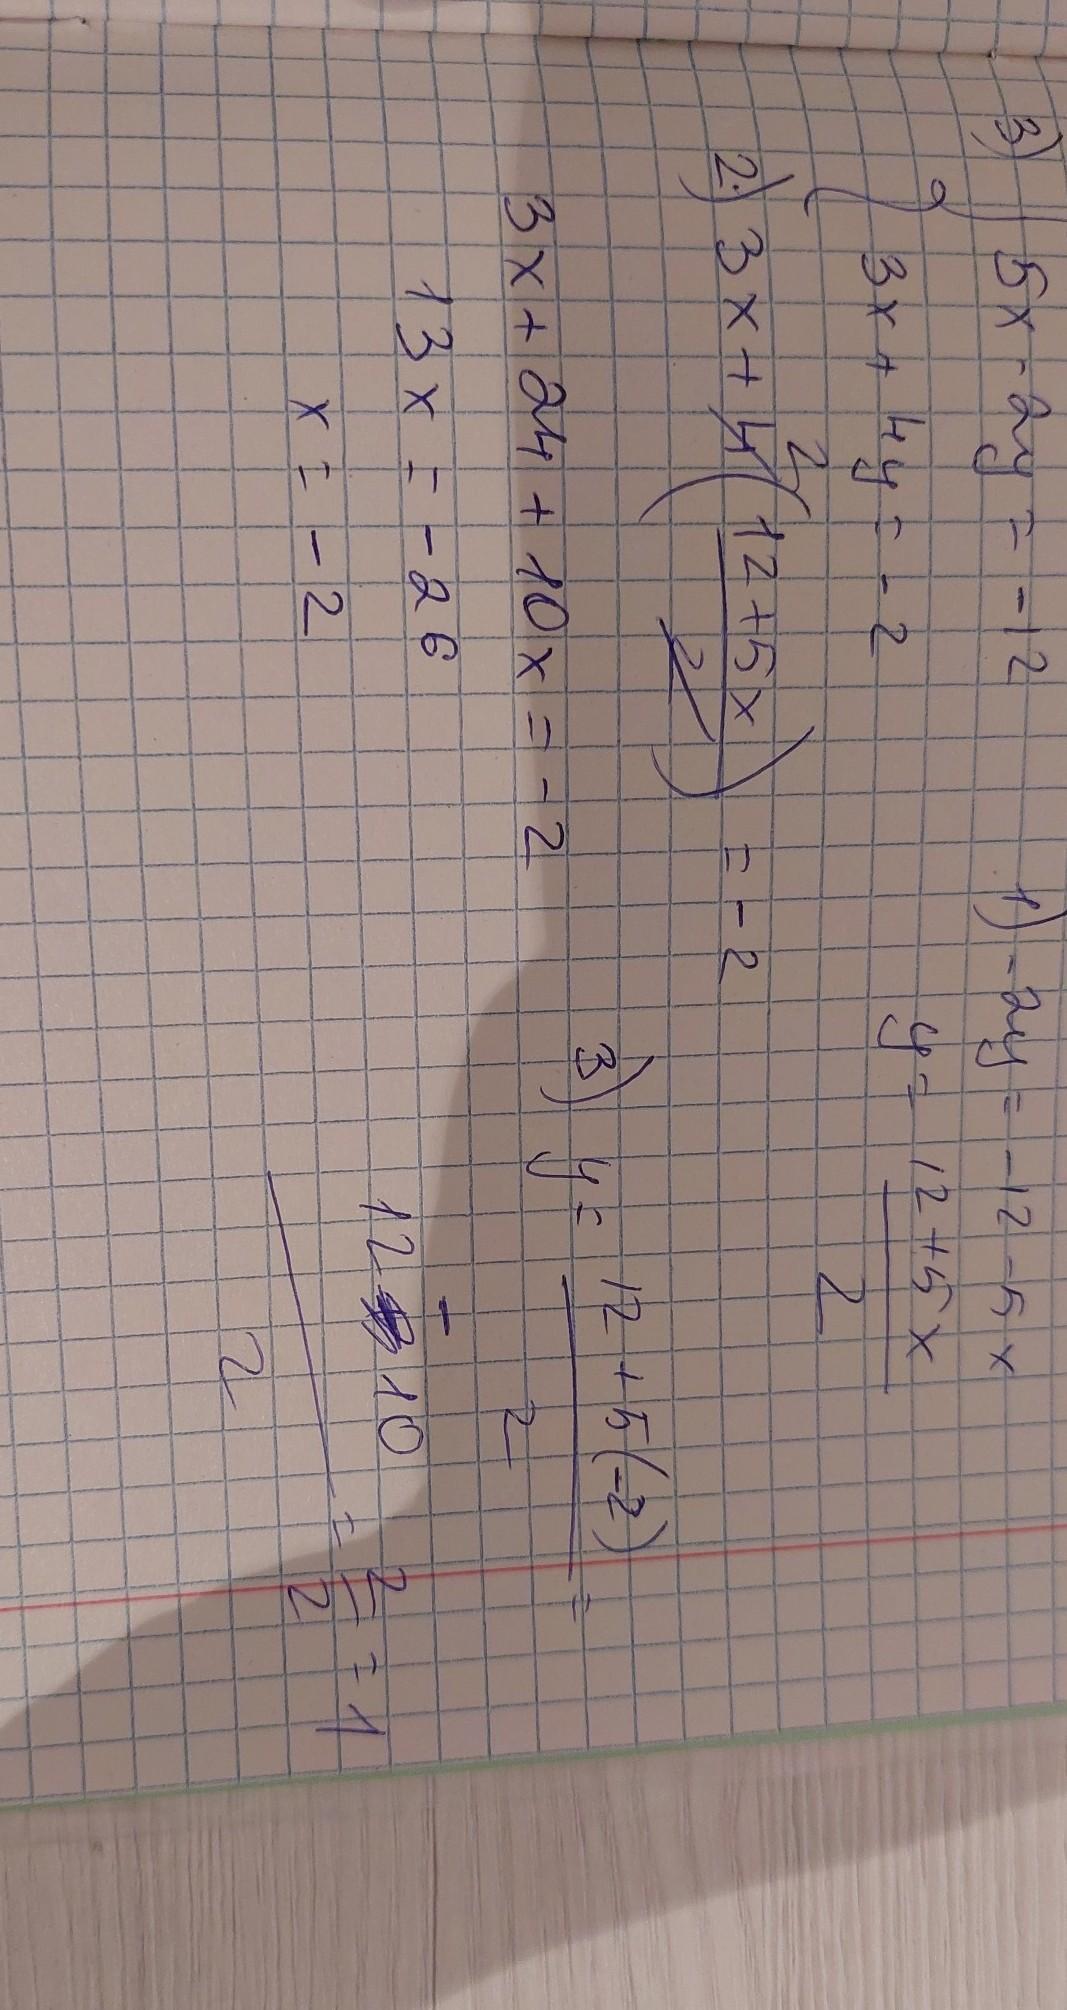 3) { 5x - 2y = -12
3x + 4y = -2
1) -2y = -12 - 5x
y = (12 + 5x)/2
2) 3x + 4 2 ((12 + 5x)/2) = -2
3x + 24 + 10x = -2
13x = -26
x = -2
3) y = (12 + 5(-2))/2 =
(12 - 10)/2 = 2/2 = 1